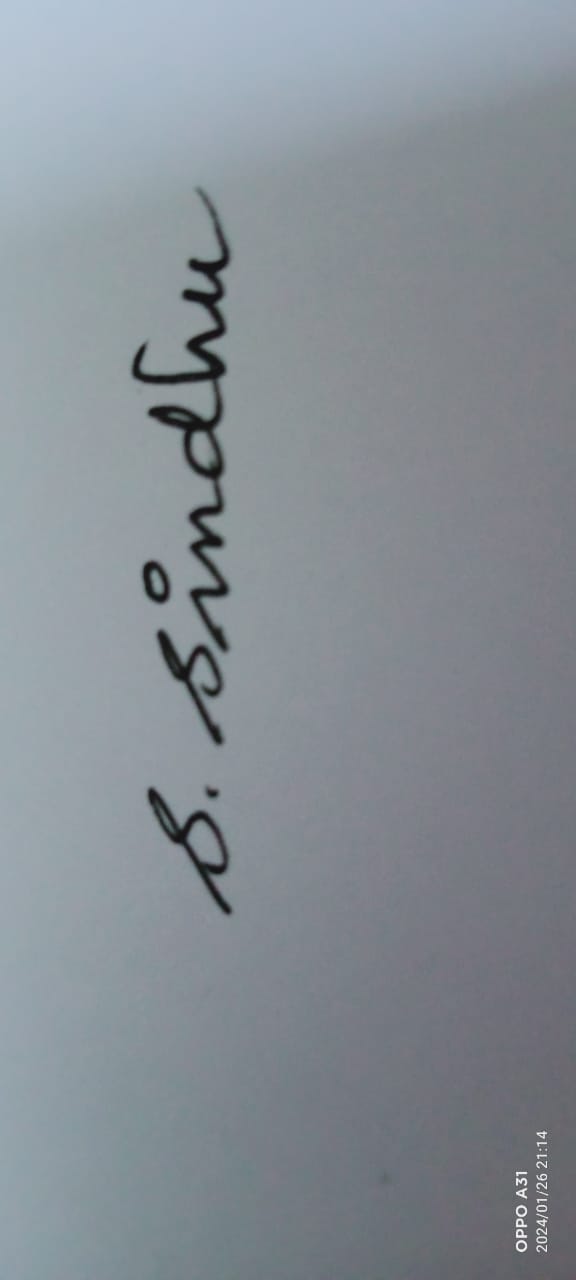 S. Sindhu
OPPO A31
2024/01/26 21:14